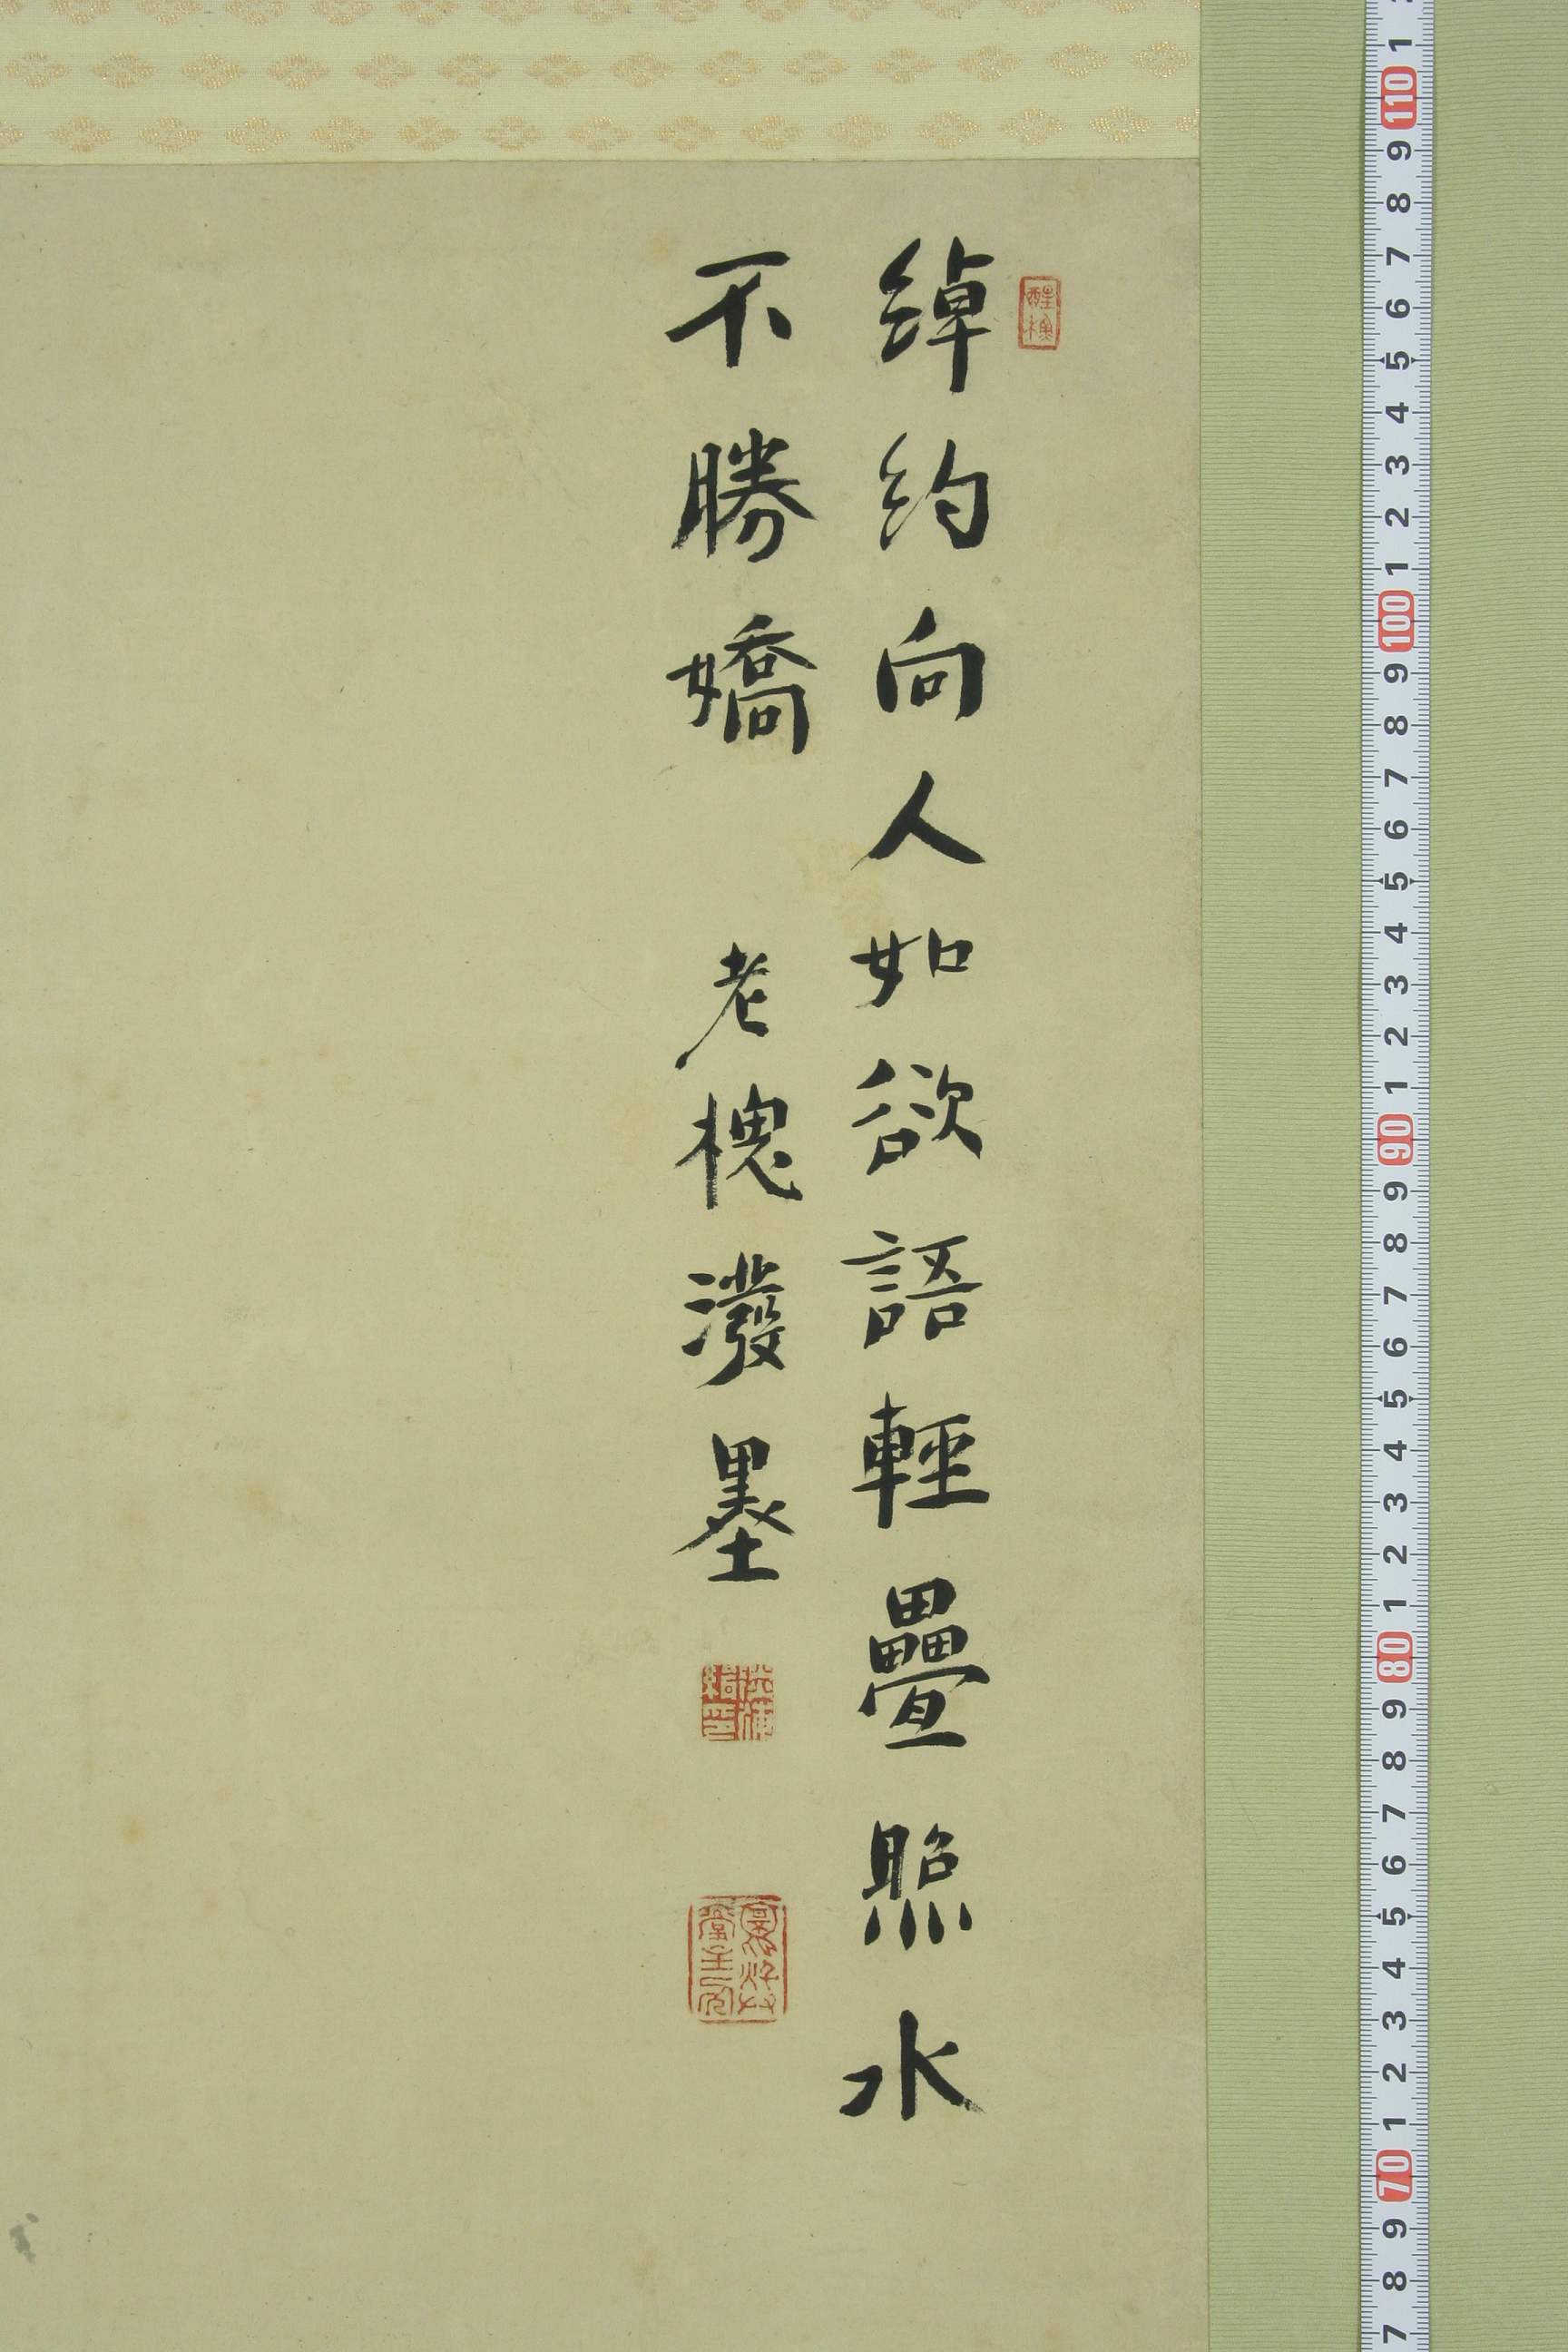 綽約向人如欲語輕疊照水
不勝嬌 老槐潑墨
1
110
9
8
7
6
5
4
3
2
1
100
9
8
7
6
5
4
3
2
1
90
9
8
7
6
5
4
3
2
1
80
9
8
7
6
5
4
3
2
1
70
9
8
7